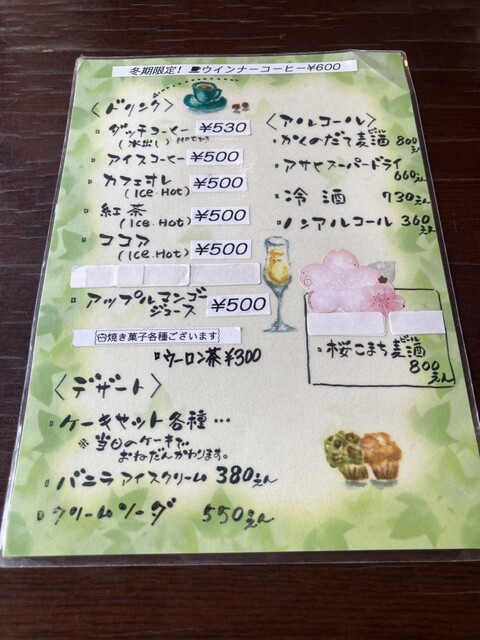 冬期限定! ウインナーコーヒー¥600
〈ドリンク〉
ダッチコーヒー ¥530
(水出し)
アイスコーヒー ¥500
カフェオレ ¥500
(Ice.Hot)
紅茶 ¥500
(Ice.Hot)
ココア ¥500
(Ice.Hot)
アップルマンゴー
ジュース ¥500
焼き菓子各種ございます
ウーロン茶¥300
〈アルコール〉
かくのだて麦酒 800
ビール
えん
アサヒスーパードライ
660えん
冷酒 730えん
ノンアルコール 360
えん
桜こまち麦酒
ビール
800
えん
〈デザート〉
ケーキセット各種…
※当日のケーキで
おねだんかわります。
バニラアイスクリーム 380えん
クリームソーダ 550えん